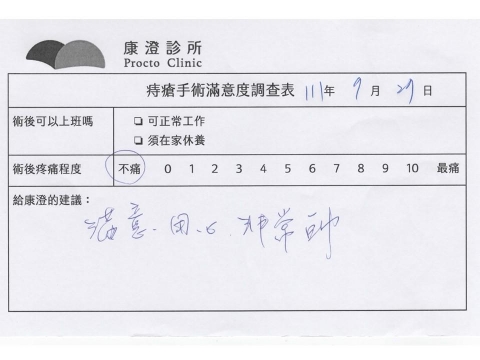 康澄診所
Procto Clinic
痔瘡手術滿意度調查表 111年 9月 29日
術後可以上班嗎
□ 可正常工作
□ 須在家休養
術後疼痛程度 不痛 0 1 2 3 4 5 6 7 8 9 10 最痛
給康澄的建議：
滿意、用心、非常帥